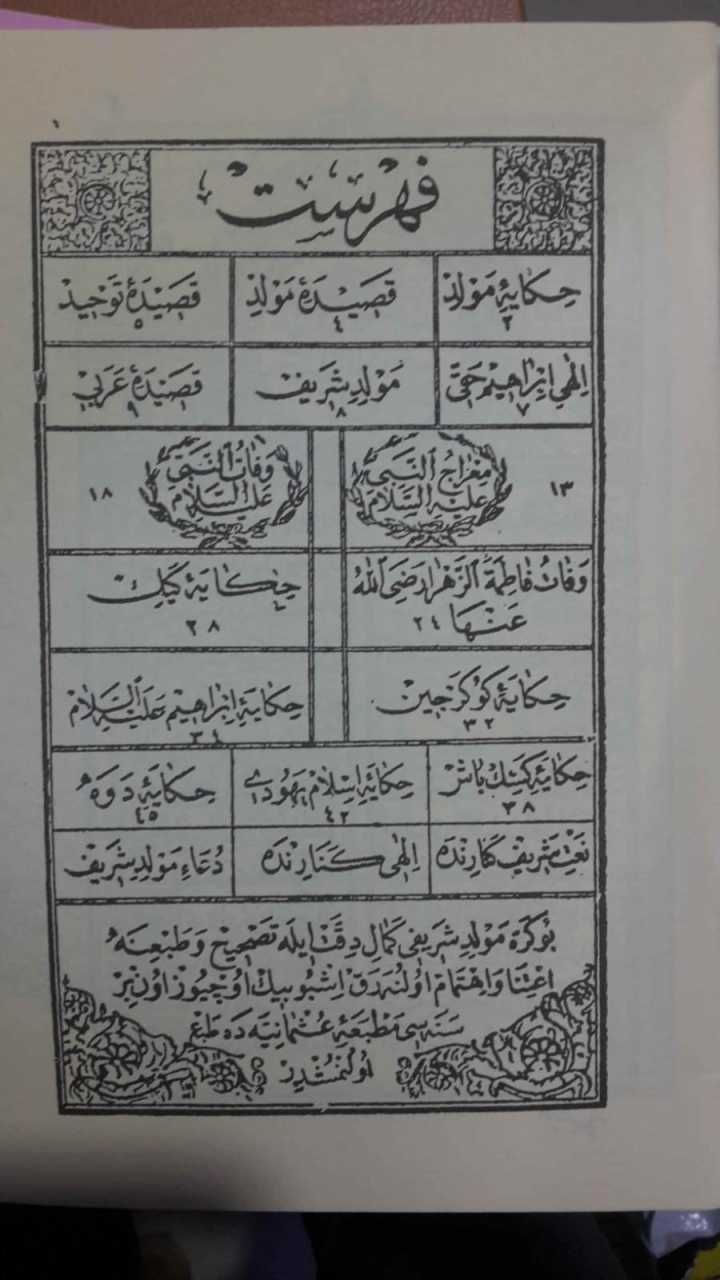 ١
فهرست
حكايۀ مولد ٢
قصيدۀ مولد ٤
قصيدۀ توحيد ٥
الهي ابراهيم حقى ٧
مولد شريف ٨
قصيدۀ عربي ٩
معراج النبى عليه السلام ١٣
وفات النبى عليه السلام ١٨
وفات فاطمة الزهرا رضى الله عنها ٢٤
حكايۀ كيك ٢٨
حكايۀ كوكرجين ٣٢
حكايۀ ابراهيم عليه السلام ٣٤
حكايۀ كسك باش ٣٨
حكايۀ اسلام يهودي ٤٢
حكايۀ دوه ٤٥
نعت شريف كنارنده
الهى كنارنده
دعاء مولد شريف
بو كره مولد شريفى كمال دقت ايله تصحيح و طبعنه
اعتنا و اهتمام اولنه رق اشبو بيك اوچيوز اون بر
سنه سى مطبعۀ عثمانيه ده طبع
اولنمشدر